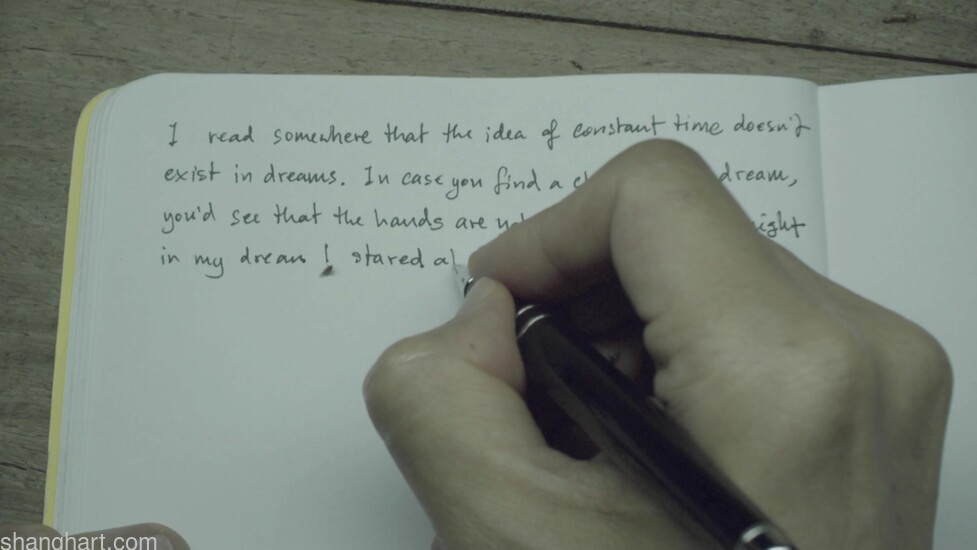 I read somewhere that the idea of constant time doesn't
exist in dreams. In case you find a dream,
you'd see that the hands are ight
in my dream I stared a
shanghart.com